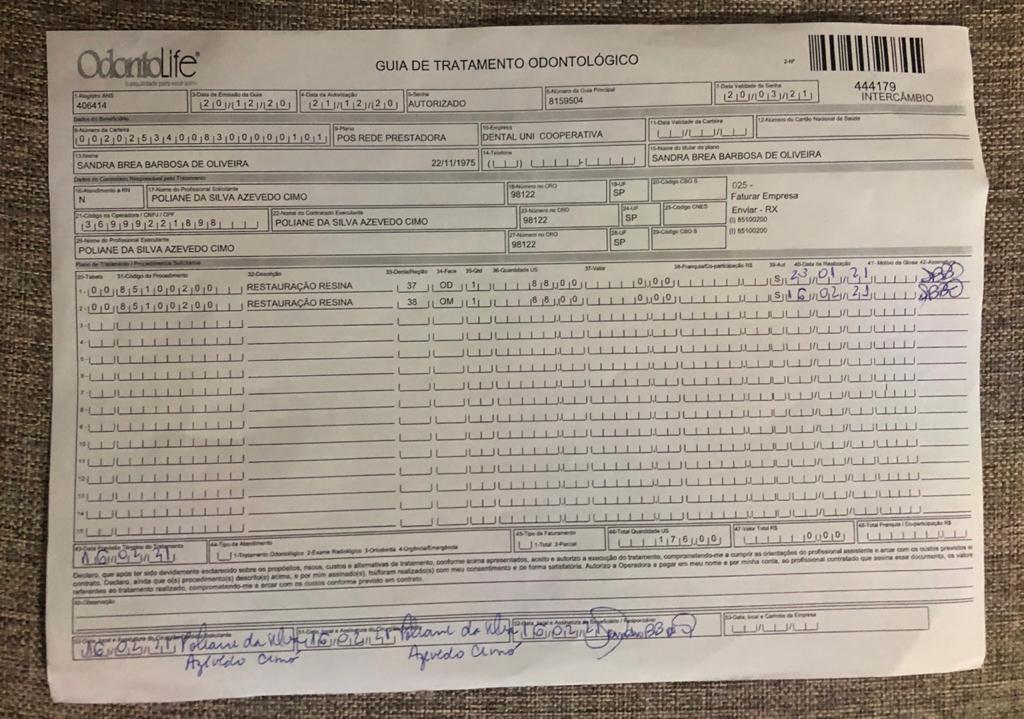 OdontoLife
tranquilidade para você sorrir
GUIA DE TRATAMENTO ODONTOLÓGICO
2-Nº
444179
INTERCÂMBIO
1-Registro ANS
406414
3-Data de Emissão da Guia
20/12/20
4-Data de Autorização
21/12/20
5-Senha
AUTORIZADO
6-Número da Guia Principal
8159504
7-Data Validade da Senha
20/03/21
Dados do Beneficiário
8-Número da Carteira
00202534008300000101
9-Plano
POS REDE PRESTADORA
10-Empresa
DENTAL UNI COOPERATIVA
11-Data Validade da Carteira
12-Número do Cartão Nacional de Saúde
13-Nome
SANDRA BREA BARBOSA DE OLIVEIRA 22/11/1975
14-Telefone
15-Nome do titular do plano
SANDRA BREA BARBOSA DE OLIVEIRA
Dados do Contratado Responsável pelo Tratamento
16-Atendimento a RN
N
17-Nome do Profissional Solicitante
POLIANE DA SILVA AZEVEDO CIMO
18-Número no CRO
98122
19-UF
SP
20-Código CBO S
025 -
Faturar Empresa
Enviar - RX
(I) 85100200
(I) 85100200
21-Código na Operadora / CNPJ / CPF
36999221898
22-Nome do Contratado Executante
POLIANE DA SILVA AZEVEDO CIMO
23-Número no CRO
98122
24-UF
SP
25-Código CNES
26-Nome do Profissional Executante
POLIANE DA SILVA AZEVEDO CIMO
27-Número no CRO
98122
28-UF
SP
29-Código CBO S
Plano de Tratamento / Procedimentos Solicitados
30-Tabela 31-Código do Procedimento 32-Descrição 33-Dente/Região 34-Face 35-Qtd 36-Quantidade US 37-Valor 38-Franquia/Co-participação R$ 39-Aut 40-Data de Realização 41- Motivo da Glosa 42-Assinatura
1- 00 85100200 RESTAURAÇÃO RESINA 37 OD 1 88,00 0,00 S 23 01 21
2- 00 85100200 RESTAURAÇÃO RESINA 38 OM 1 88,00 0,00 S 16 02 21
3-
4-
5-
6-
7-
8-
9-
10-
11-
12-
13-
14-
15-
43-Data Previsão Término do Tratamento
16 02 21
44-Tipo de Atendimento
1-Tratamento Odontológico 2-Exame Radiológico 3-Ortodontia 4-Urgência/Emergência
45-Tipo de Faturamento
1-Total 2-Parcial
46-Total Quantidade US
176,00
47-Valor Total R$
0,00
48-Total Franquia / Co-participação R$
Declaro, que após ter sido devidamente esclarecido sobre os propósitos, riscos, custos e alternativas de tratamento, conforme acima apresentados, aceito e autorizo a execução do tratamento, comprometendo-me a cumprir as orientações do profissional assistente e arcar com os custos previstos em
contrato. Declaro, ainda que o(s) procedimento(s) descrito(s) acima, e por mim assinado(s), foi/foram realizado(s) com meu consentimento e de forma satisfatória. Autorizo a Operadora a pagar em meu nome e por minha conta, ao profissional contratado que assina esse documento, os valores
referentes ao tratamento realizado, comprometendo-me a arcar com os custos conforme previsto em contrato.
49-Observação
16 02 21 Poliane da Silva
Azevedo Cimo
16 02 21 Poliane da Silva
Azevedo Cimo
16 02 21
53-Data, local e Carimbo da Empresa